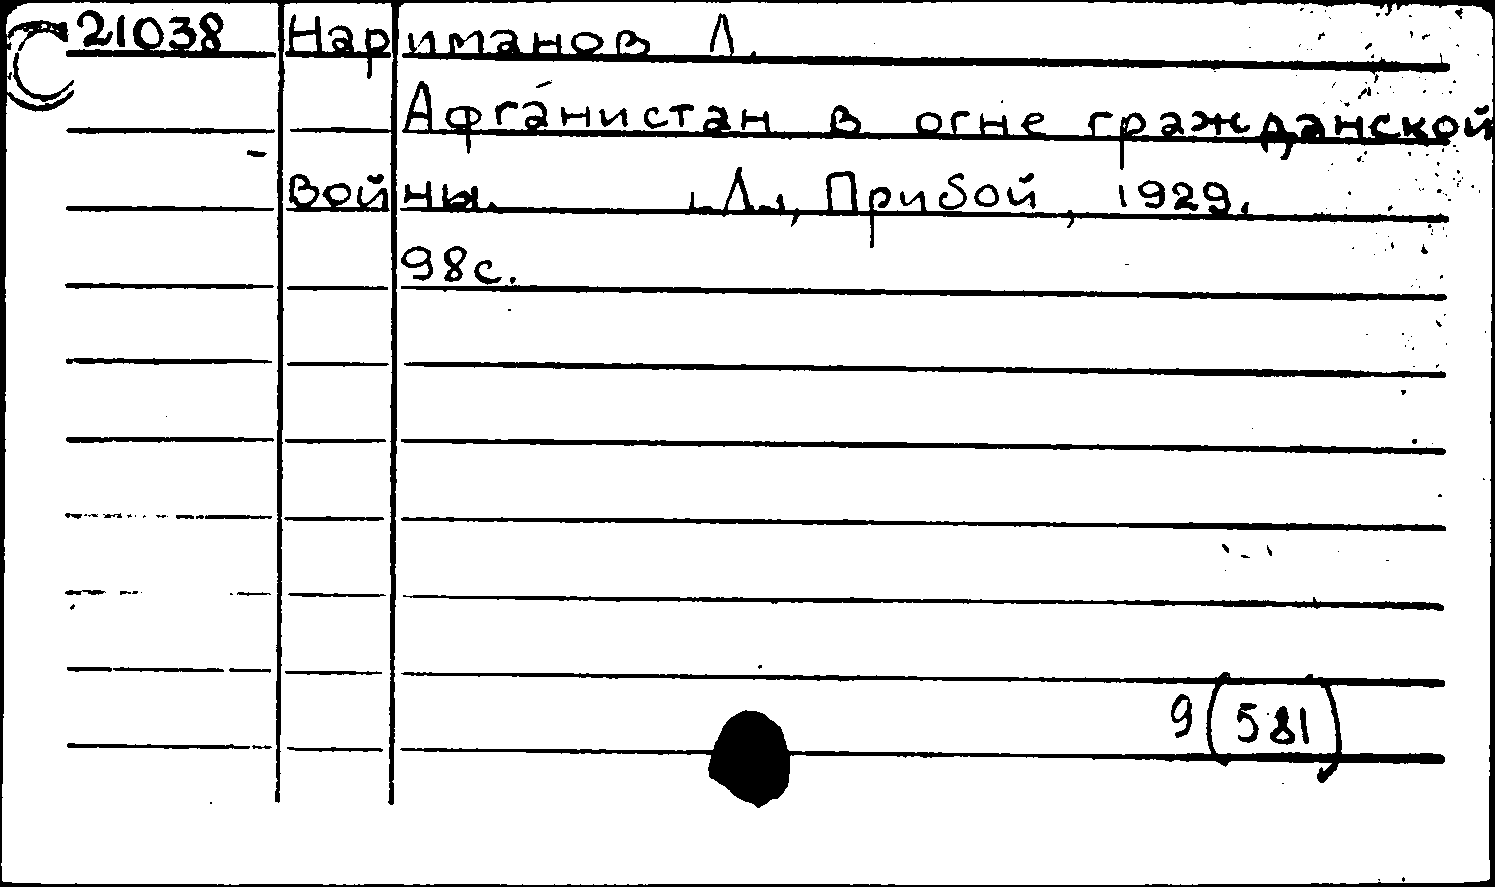 21038 Нариманов Л.
Афганистан в огне гражданской
войны. Л., Прибой, 1929.
98с.
9(581)